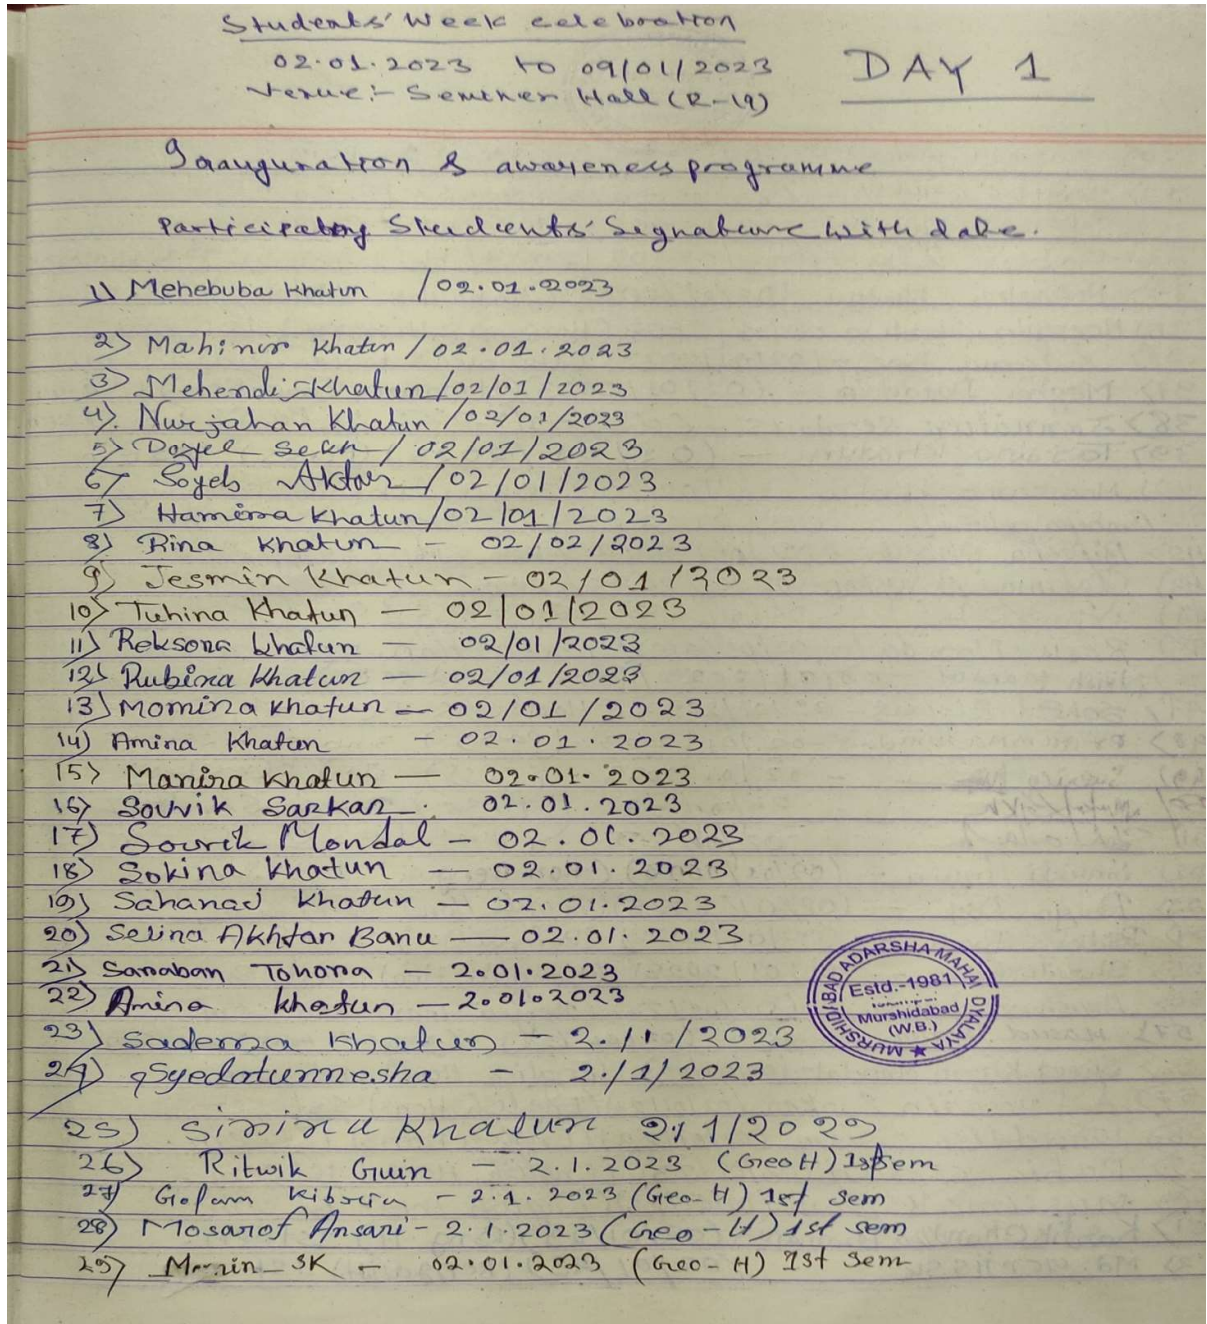 Students' Week celebration
02.01.2023 to 09/01/2023
DAY 1
Venue:- Seminer Hall (R-19)
Inauguration & awareness programme
Participating Students' Signature with date.
1) Mehebuba Khatun /02.01.2023
2) Mahinur Khatun / 02.01.2023
3) Mehendi Khatun/02/01/2023
4). Nurjahan Khatun /02/01/2023
5) Sekh / 02/01/2023
6) Soyeb Aktar /02/01/2023
7) Hamina Khatun/02/01/2023
8) Rina Khatun - 02/02/2023
9) Jesmin Khatun - 02/01/2023
10) Tuhina Khatun - 02/01/2023
11) Reksona Khatun - 02/01/2023
12) Rubina Khatun - 02/01/2023
13) Momina Khatun - 02/01/2023
14) Amina Khatun - 02.01.2023
15) Manira Khatun - 02.01.2023
16) Souvik Sarkar. 02.01.2023
17) Sourik Mondal - 02.01.2023
18) Sokina Khatun - 02.01.2023
19) Sahanaj Khatun - 02.01.2023
20) Selina Akhtar Banu - 02.01.2023
21) Sanaban Tohora - 2.01.2023
22) Amina Khatun - 2.01.2023
23) Khatun - 2./1/2023
24) Syedatunnesha - 2./1/2023
25) Sirina Khatun 2/1/2023
26) Ritwik Guin - 2.1.2023 (Geo H) 1st Sem
27) Golam Kibria - 2.1.2023 (Geo-H) 1st Sem
28) Mosarof Ansari - 2.1.2023 (Geo-H) 1st Sem
29) SK - 02.01.2023 (Geo-H) 1st Sem
MURSHIDABAD ADARSHA MAHAVIDYALAYA
Estd.-1981
Murshidabad
(W.B.)